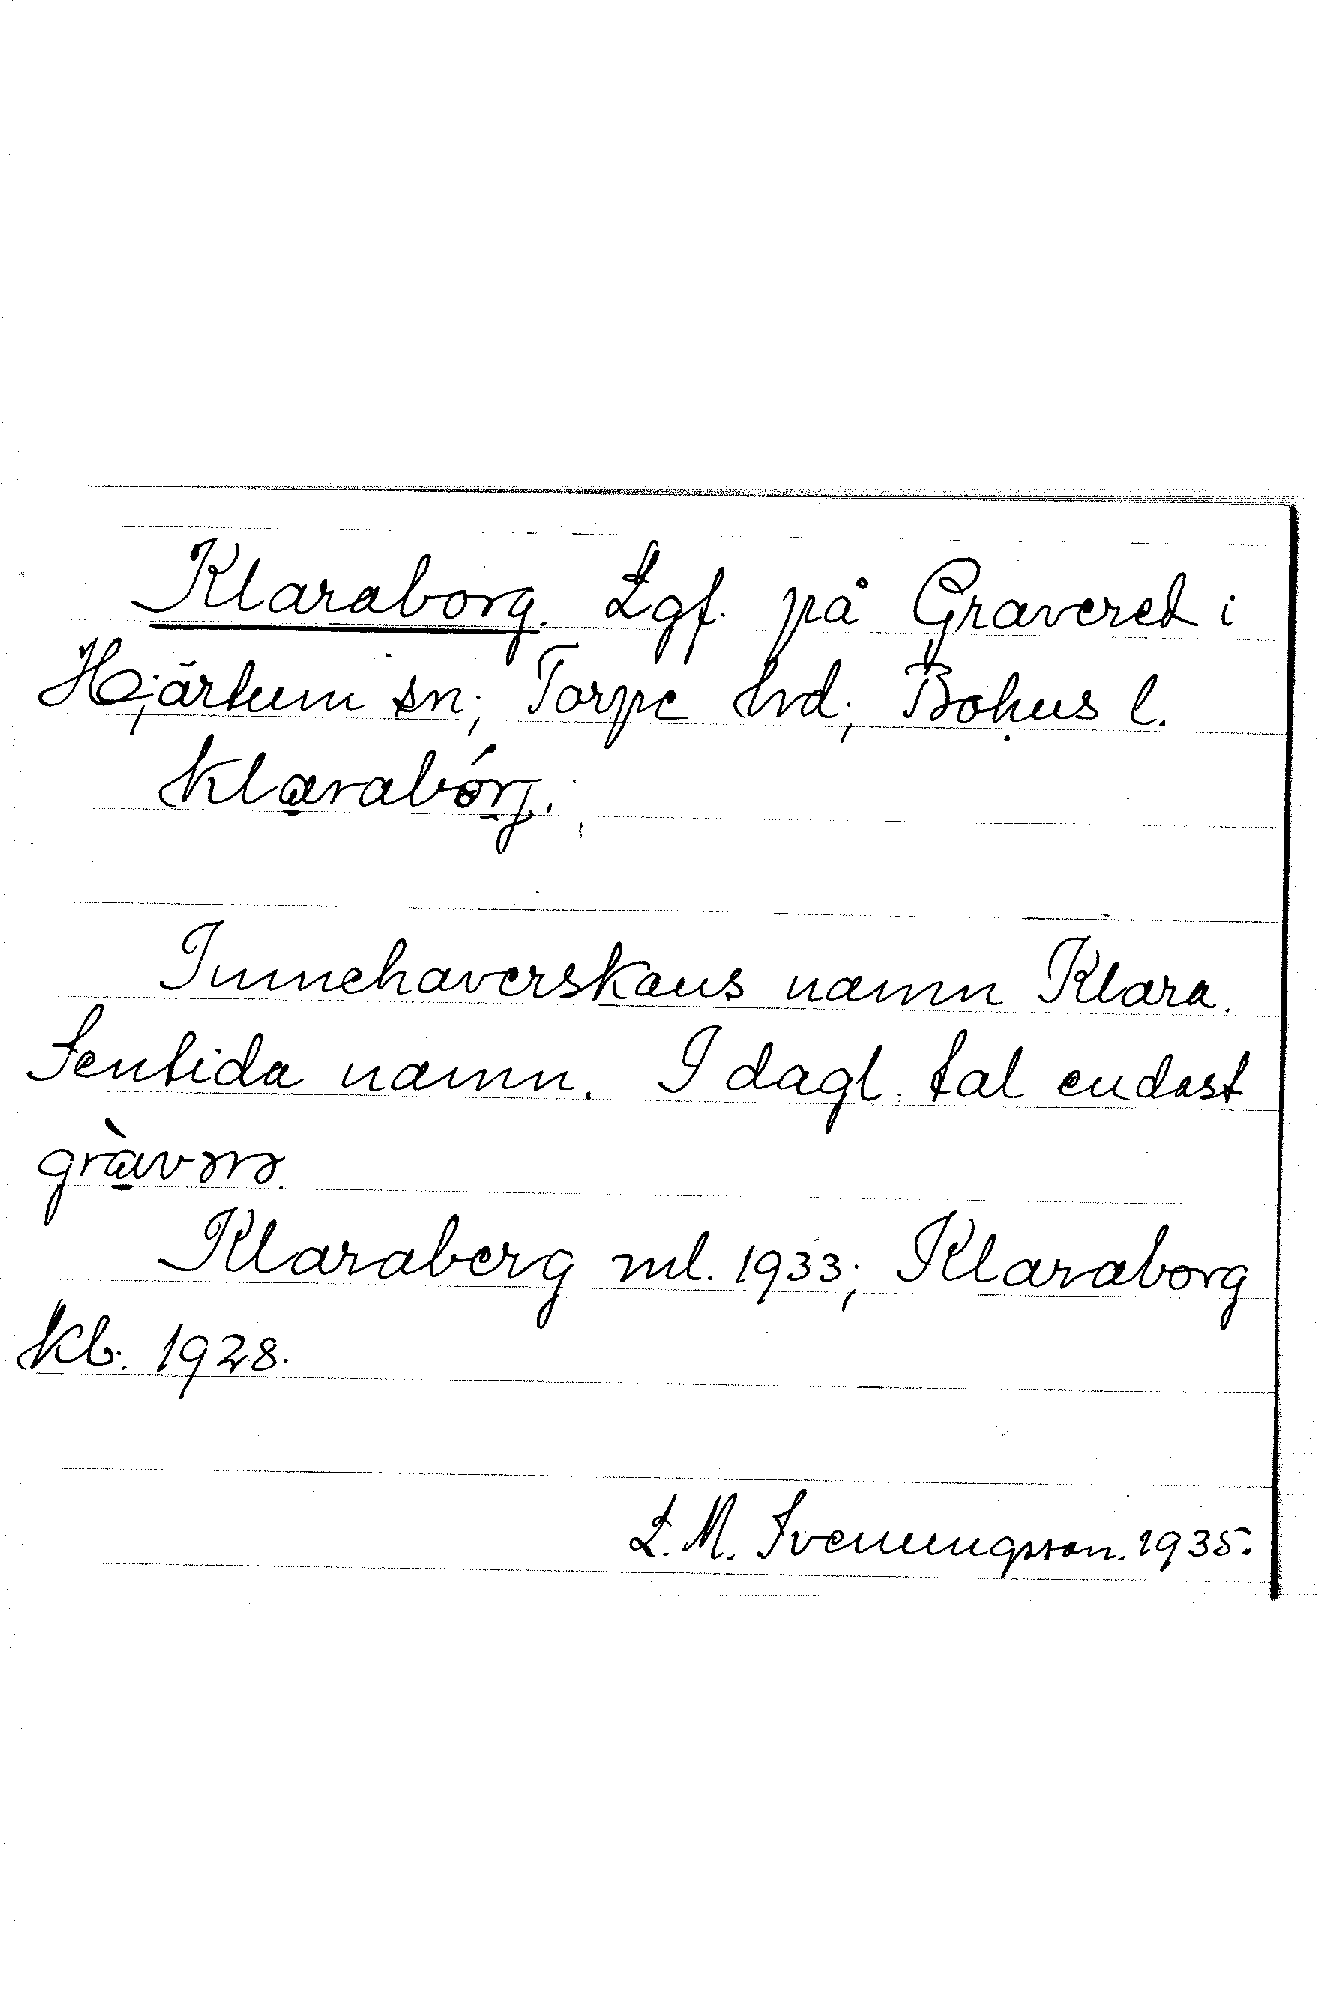 Klaraborg. Lgf. på Graveret i
Hjärtum sn; Torpe hd; Bohus l.
klarabórj.
Innehaverskans namn Klara.
Sentida namn. I dagl. tal endast
gràvərə.
Klaraberg ml. 1933; Klaraborg
kb. 1928.
L. M. Svenungsson. 1935.